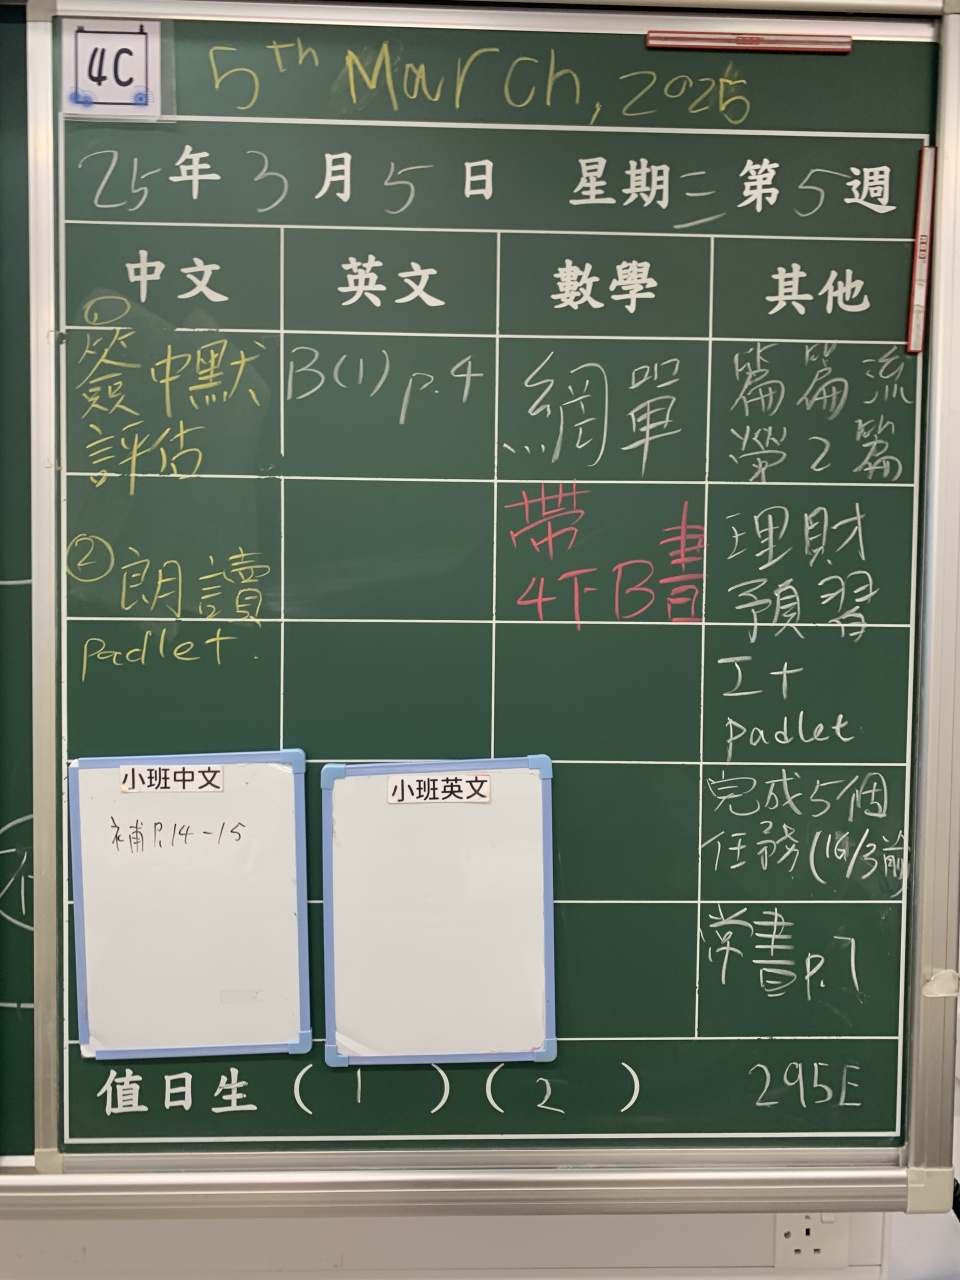 4C
5th March, 2025
25年3月5日 星期三 第5週
中文 英文 數學 其他
①
簽中默
評估
②朗讀
padlet.
B(1) p.4
網單
帶
4下B書
篇篇流
螢2篇
理財
預習
工+
padlet
完成5個
任務(16/3前)
常書p.7
小班中文
補P.14-15
小班英文
值日生 ( 1 ) ( 2 ) 295E